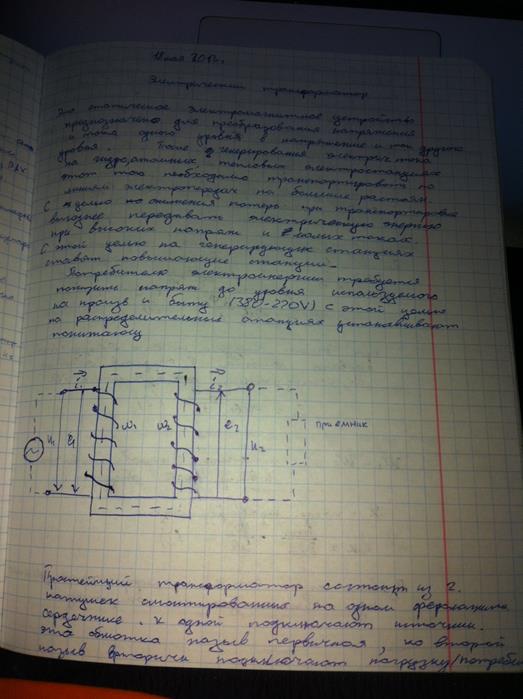 мая
Электрический трансформатор
Это статическое электромагнитное устройство
предназначено для преобразования напряжения
и тока одного уровня в напряжение и ток другого
уровня. После генерирования электрич тока
на гидро, атомных, тепловых электростанциях
этот ток необходимо транспортировать по
линиям электропередач на большие растоян.
С целью снижения потерь при транспортировке
выгоднее передавать электрическую энергию
при высоких напряж и малых токах.
С этой целью на генерирующих станциях
ставят повышающие станции.
Потребителю электроэнергии требуется
понизить напряж до уровня используемого
на произв и быту (380-220V) с этой целью
на распределительные станциях устанавливают
понижающ
i₁ i₂
U₁ e₁ w₁ w₂ e₂ U₂ приемник
Простейший трансформатор состоит из 2.
катушек смонтированных на одном
сердечнике. к одной подключают источник.
эта обмотка назыв первичная, ко второй
назыв вторичн подключают нагрузку/потреби